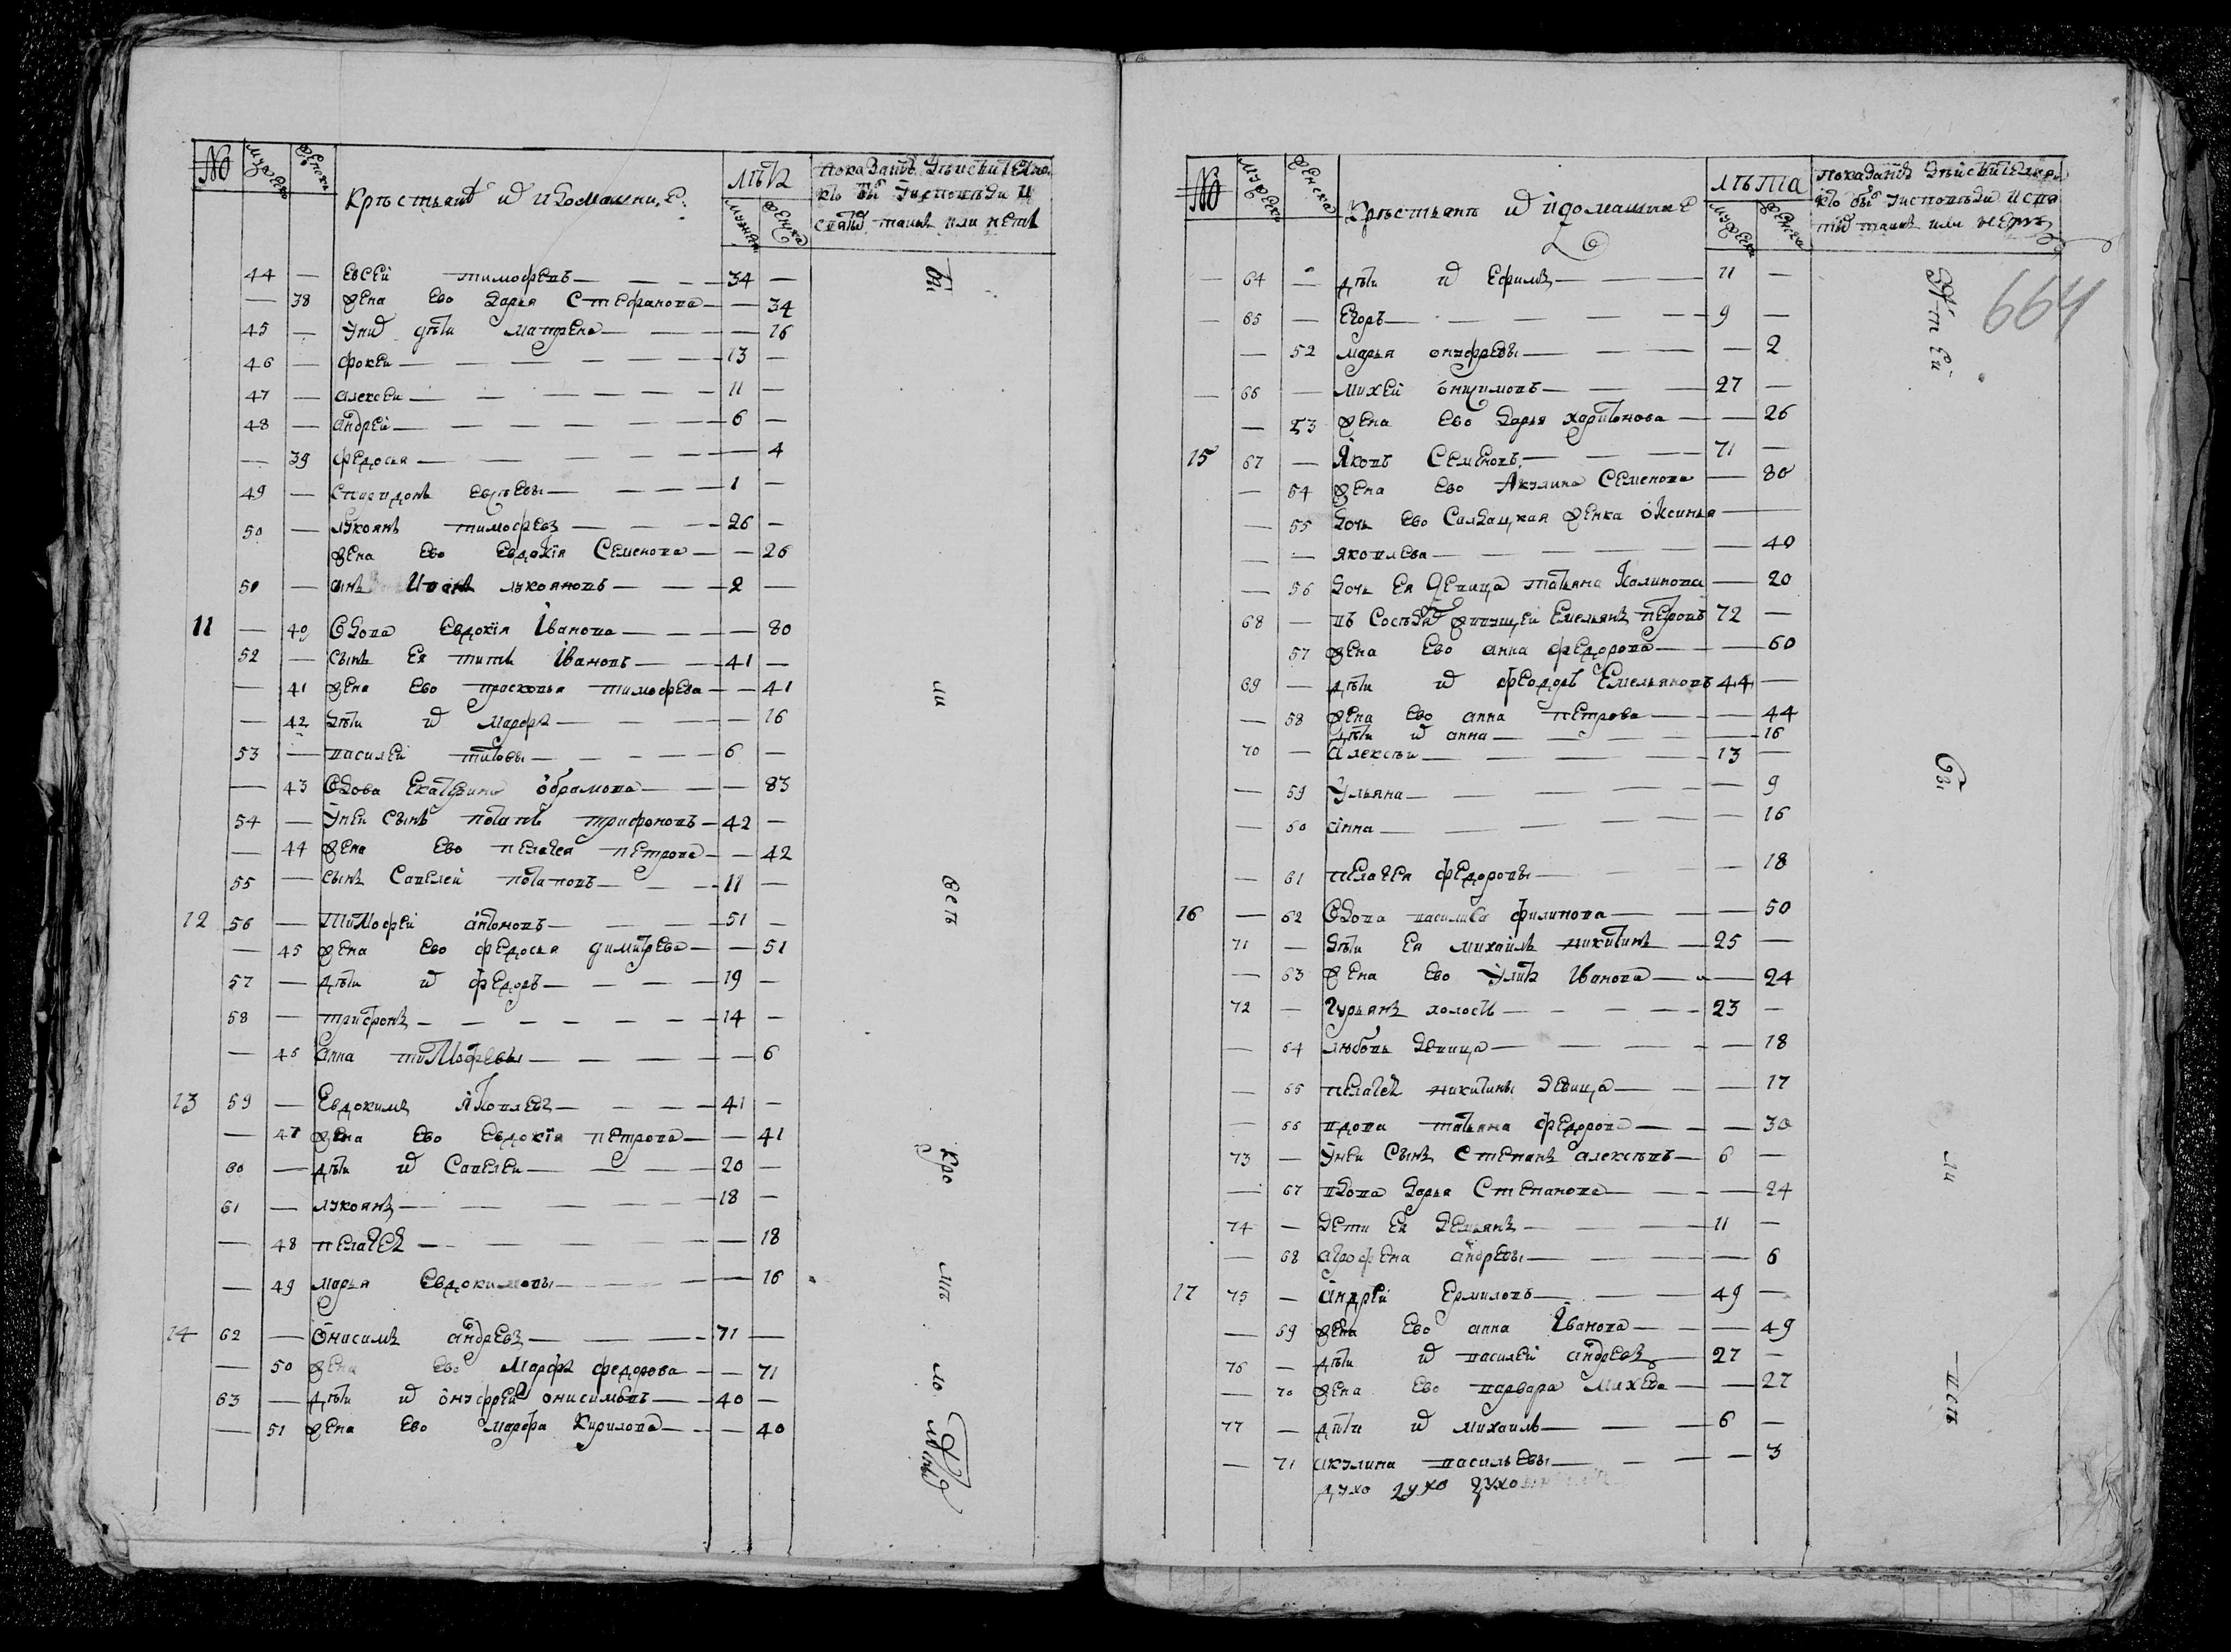 № мужеска женска крестьяне и домашни. е. лѣта мужска женска показание дѣиствително
кто былъ у исповѣди и
святыхъ таинъ или нетъ
44 — Евсей тимофеевъ — 34 —
— 38 жена ево дарья Стефанова — — 34
45 — У них дѣти матрена — — 16
46 — фокеи — 13 —
47 — алексеи — 11 —
48 — андрей — 6 —
— 39 федосья — — 4
49 — спиридонъ евсѣевы — 1 —
50 — лукоянъ тимофеевъ — 26 —
жена ево евдокїя Семенова — — 26
50 — сынъ Иванъ лукояновъ — 2 —
11 — 40 вдова Евдокїя Іванова — — 80
52 — сынъ Ея титъ Івановъ — 41 —
— 41 жена ево прасковья тимофеева — — 41
— 42 дѣти их марфа — — 16
53 — василей титовы — 6 —
— 43 вдова Екатерина обрамова — — 83
54 — У неи сынъ потапъ трифоновъ — 42 —
— 44 жена ево пелагея петрова — — 42
55 — сынъ Савелей потаповъ — 11 —
12 56 — Тимофей антоновъ — 51 —
— 45 жена ево федосья димитрева — — 51
57 — дѣти их федоръ — 19 —
58 — трифонъ — 14 —
— 46 анна тимофеевы — — 6
13 59 — Евдокимъ Яковлевъ — 41 —
— 47 жена ево Евдокїя петрова — — 41
60 — дѣти их Савелеи — 20 —
61 — лукоянъ — 18 —
— 48 пелагея — — 18
— 49 марья Евдокимовы — — 16
14 62 — Онисимъ андреевъ — 71 —
— 50 жена ево Марфа федорова — — 71
63 — дѣти их онуфрей онисимовъ — 40 —
— 51 жена ево марфа Кирилова — — 40
№ мужеска женска крестьянъ и домашние лѣта мужеска женска показание дѣиствително
кто былъ у исповѣди и свя
тых таинъ или нетъ
664
— 64 — дѣти их Ефимъ — 11 —
— 65 — Егоръ — 9 —
— 52 марья онуфреевы — — 2
— 66 — михей онисимовъ — 27 —
— 53 жена ево дарья харитонова — — 26
15 67 — Яковъ Семеновъ — 71 —
— 54 жена ево Акулина Семенова — 80
— 55 дочь ево Салдацкая женка оксинья —
— Яковлева — — 40
— 56 дочь Ея девица татьяна Калинова — 20
68 — въ Соседях живущей Емельянъ петровъ 72 —
57 жена ево анна федорова — — 60
69 — дѣти их феодоръ Емельяновъ 44 —
— 58 жена ево анна петрова — — 44
дѣти их анна — — 16
70 — алексѣи — 13 —
— 59 Ульяна — — 9
— 60 анна — — 16
— 61 пелагея федоровы — — 18
16 — 62 вдова василиса филипова — — 50
71 — дѣти Ея михаилъ никитинъ — 25 —
— 63 жена ево Улита Иванова — — 24
72 — гурьянъ холостъ — 23 —
— 64 любовь девица — — 18
— 65 пелагея никитины девица — — 17
— 66 вдова татьяна федорова — — 30
73 — У неи Сынъ Степанъ алексѣевъ — 6 —
— 67 вдова дарья Степанова — — 24
74 — Дети Ея Демьянъ — 11 —
— 68 агрофена андреевы — — 6
17 75 — андрей Ермиловъ — 49 —
— 69 жена ево анна Іванова — — 49
76 — дѣти их василей андреевъ 27 —
— 70 жена ево варвара михева — — 27
77 — дѣти их михаилъ — 6 —
— 71 акулина васильевы — — 3
духо духо духо